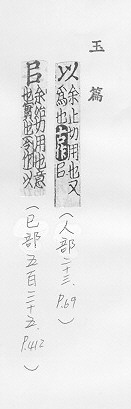 玉篇
以 余止切用也又為也古作㠯
（人部二十三、P.69）
㠯 余始切用也意也實也今作以
（巳部五百三十五、P.412）